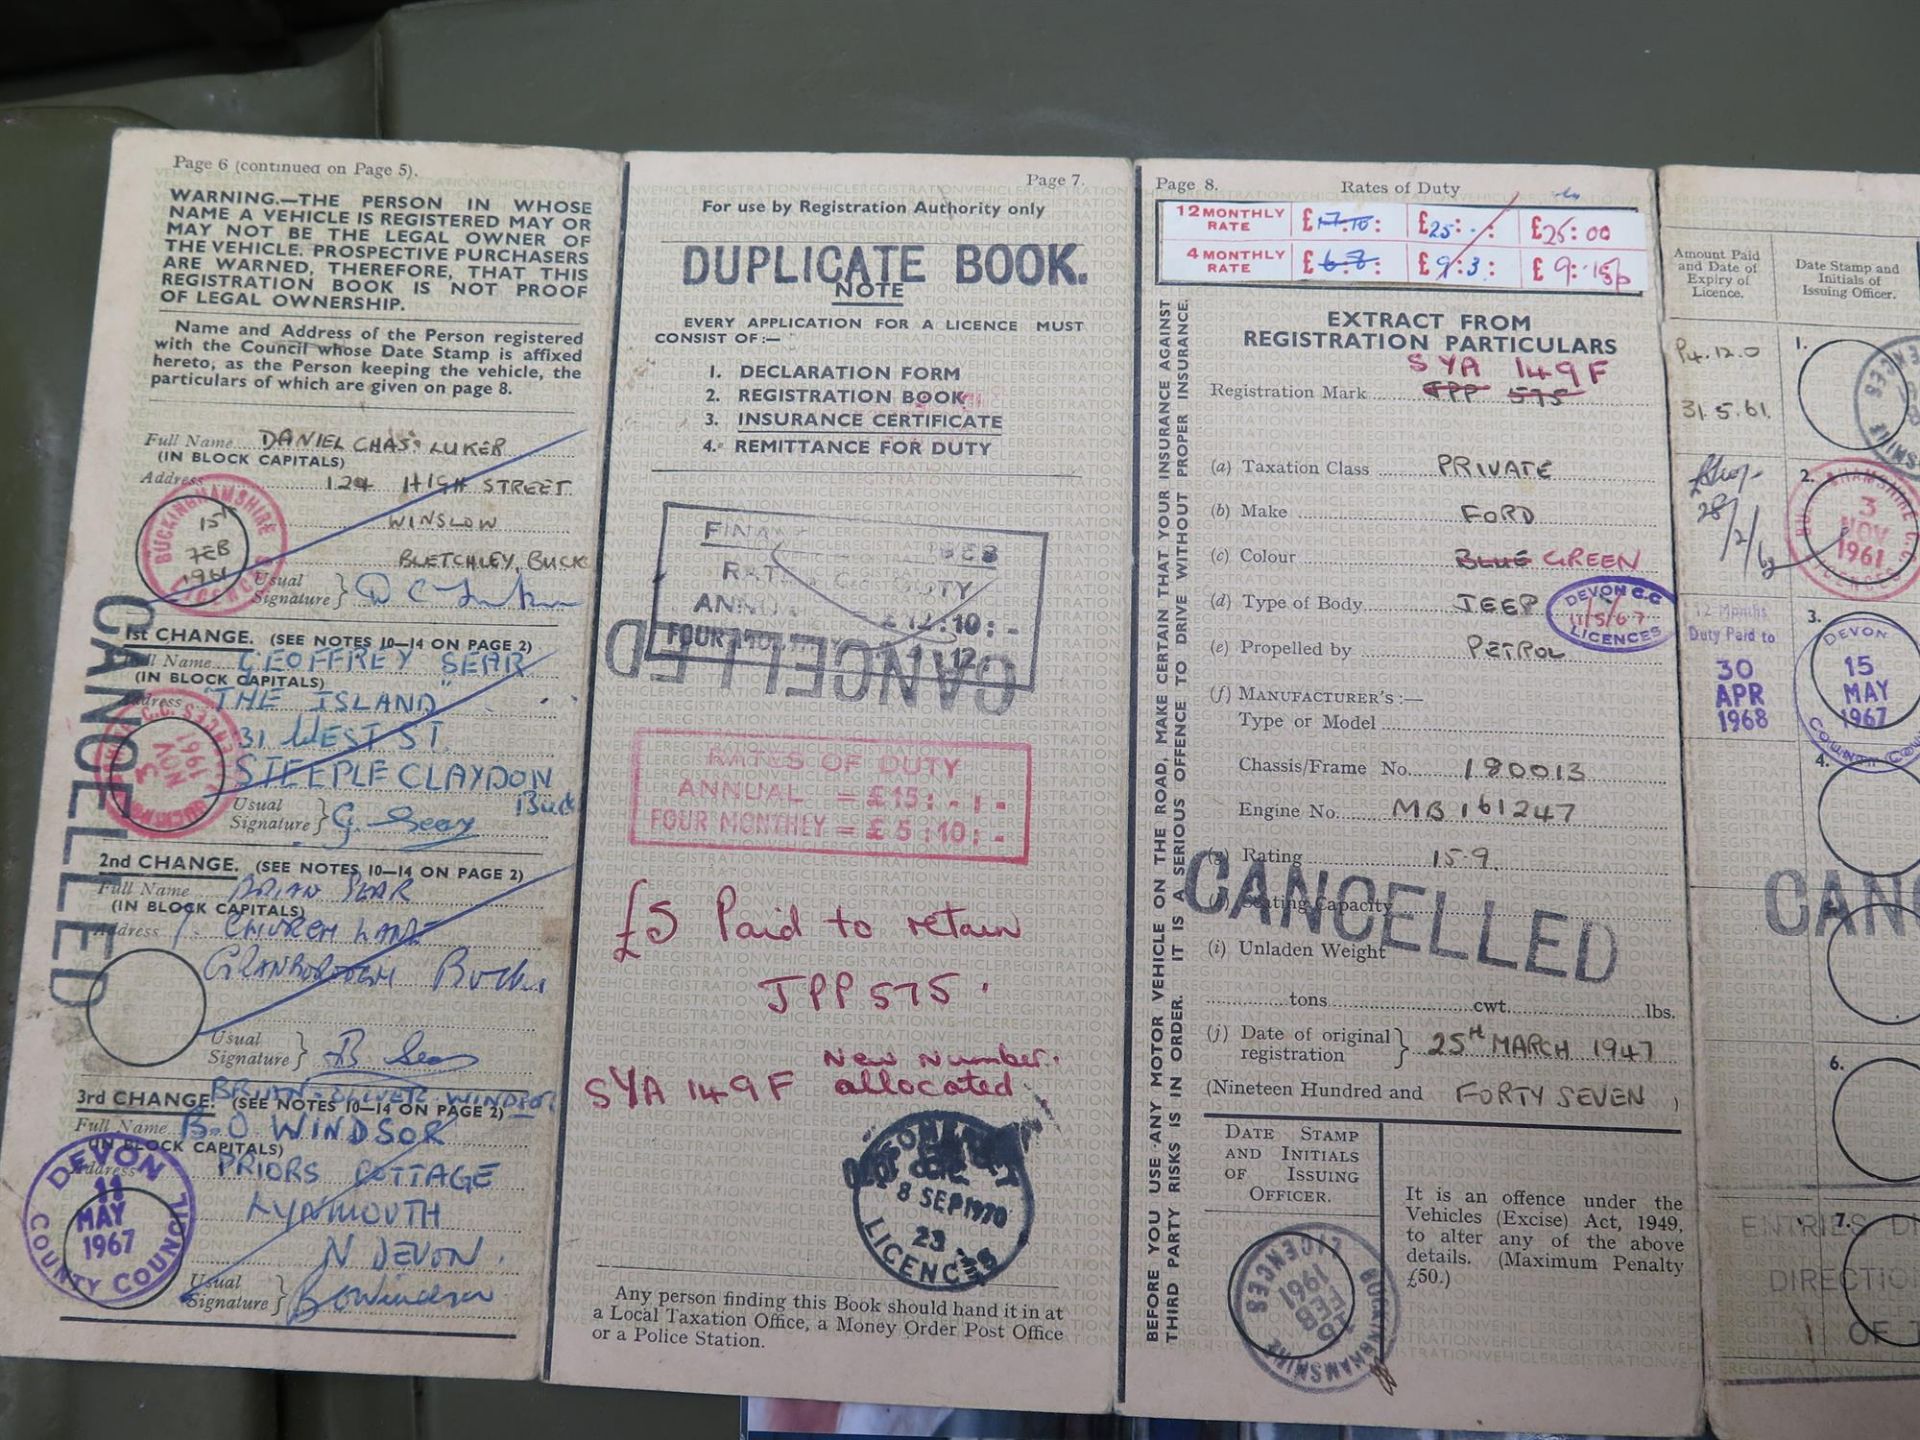 Page 6 (continued on Page 5).
WARNING.—THE PERSON IN WHOSE
NAME A VEHICLE IS REGISTERED MAY OR
MAY NOT BE THE LEGAL OWNER OF
THE VEHICLE. PROSPECTIVE PURCHASERS
ARE WARNED, THEREFORE, THAT THIS
REGISTRATION BOOK IS NOT PROOF
OF LEGAL OWNERSHIP.
Name and Address of the Person registered
with the Council whose Date Stamp is affixed
hereto, as the Person keeping the vehicle, the
particulars of which are given on page 8.
Full Name DANIEL CHAS. LUKER
(IN BLOCK CAPITALS)
Address 124 HIGH STREET
WINSLOW
BLETCHLEY, BUCK
BUCKINGHAMSHIRE
15 FEB 1961
LICENCES
Usual
Signature
CANCELLED
1st CHANGE. (SEE NOTES 10—14 ON PAGE 2)
Full Name GEOFFREY SEAR
(IN BLOCK CAPITALS)
Address "THE ISLAND"
31 WEST ST.
STEEPLE CLAYDON
Buck
3 NOV 1961
Usual
Signature G. Sear
2nd CHANGE. (SEE NOTES 10—14 ON PAGE 2)
Full Name BRIAN SEAR
(IN BLOCK CAPITALS)
Address CHURCH LANE
GRANBOROUGH Bucks.
Usual
Signature B Sear
BRIAN OLIVER WINDSOR
3rd CHANGE. (SEE NOTES 10—14 ON PAGE 2)
Full Name B.O WINDSOR
(IN BLOCK CAPITALS)
Address PRIORS COTTAGE
LYNMOUTH
N DEVON.
DEVON COUNTY COUNCIL
11 MAY 1967
Usual
Signature BOWindsor
Page 7.
For use by Registration Authority only
DUPLICATE BOOK.
NOTE
EVERY APPLICATION FOR A LICENCE MUST
CONSIST OF:—
1. DECLARATION FORM
2. REGISTRATION BOOK
3. INSURANCE CERTIFICATE
4. REMITTANCE FOR DUTY
CANCELLED
RATES OF DUTY
ANNUAL = £15: - : -
FOUR MONTHLY = £5:10: -
£5 Paid to retain
JPP 575.
SYA 149F New number allocated.
SOMERSET
8 SEP 1970
23
LICENCES
Any person finding this Book should hand it in at
a Local Taxation Office, a Money Order Post Office
or a Police Station.
Page 8. Rates of Duty
12 MONTHLY RATE £17.10: £25: - : £25:00
4 MONTHLY RATE £6.8: £9:3: £9:15p
BEFORE YOU USE ANY MOTOR VEHICLE ON THE ROAD, MAKE CERTAIN THAT YOUR INSURANCE AGAINST
THIRD PARTY RISKS IS IN ORDER. IT IS A SERIOUS OFFENCE TO DRIVE WITHOUT PROPER INSURANCE.
EXTRACT FROM
REGISTRATION PARTICULARS
SYA 149F
Registration Mark JPP 575
(a) Taxation Class PRIVATE
(b) Make FORD
(c) Colour BLUE GREEN
(d) Type of Body JEEP
DEVON C.C
11/5/67
LICENCES
(e) Propelled by PETROL
(f) MANUFACTURER'S:—
Type or Model
Chassis/Frame No. 180013
Engine No. MB 161247
(g) Rating 15.9
Seating Capacity
CANCELLED
(i) Unladen Weight
tons cwt. lbs.
(j) Date of original
registration } 25TH MARCH 1947
(Nineteen Hundred and FORTY SEVEN )
DATE STAMP
AND INITIALS
OF ISSUING
OFFICER.
It is an offence under the
Vehicles (Excise) Act, 1949,
to alter any of the above
details. (Maximum Penalty
£50.)
BUCKINGHAMSHIRE
FEB 1961
LICENCES
Amount Paid
and Date of
Expiry of
Licence.
Date Stamp and
Initials of
Issuing Officer.
£4.12.0
31.5.61.
1.
2.
3 NOV 1961
12 Months
Duty Paid to
30
APR
1968
3.
DEVON
15
MAY
1967
COUNTY
4.
CAN
6.
7.
ENTRIES
DIRECTIO
OF